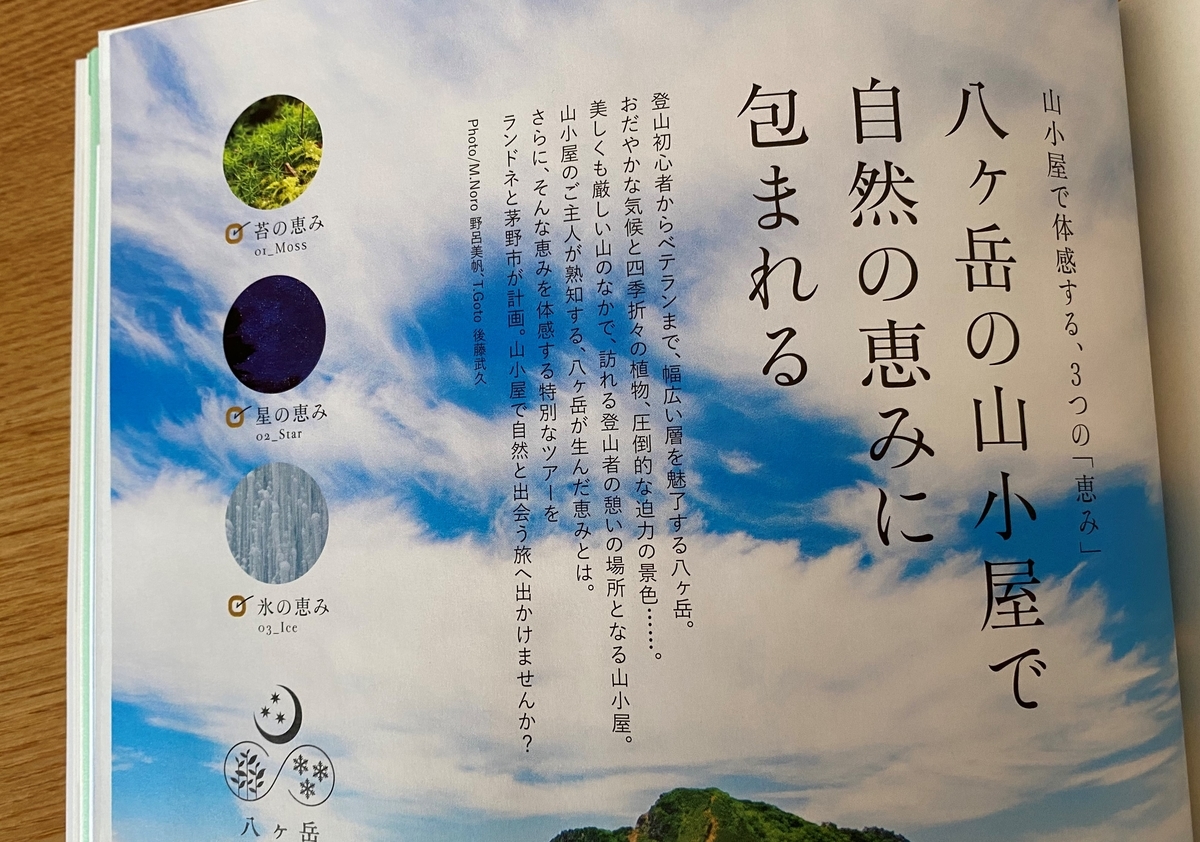 山小屋で体感する、3つの「恵み」
八ヶ岳の山小屋で
自然の恵みに
包まれる
登山初心者からベテランまで、幅広い層を魅了する八ヶ岳。
おだやかな気候と四季折々の植物、圧倒的な迫力の景色……。
美しくも厳しい山のなかで、訪れる登山者の憩いの場所となる山小屋。
山小屋のご主人が熟知する、八ヶ岳が生んだ恵みとは。
さらに、そんな恵みを体感する特別なツアーを
ランドネと茅野市が計画。山小屋で自然と出会う旅へ出かけませんか？
Photo/M.Noro 野呂美帆、T.Goto 後藤武久
苔の恵み
01_Moss
星の恵み
02_Star
氷の恵み
03_Ice
八ヶ岳